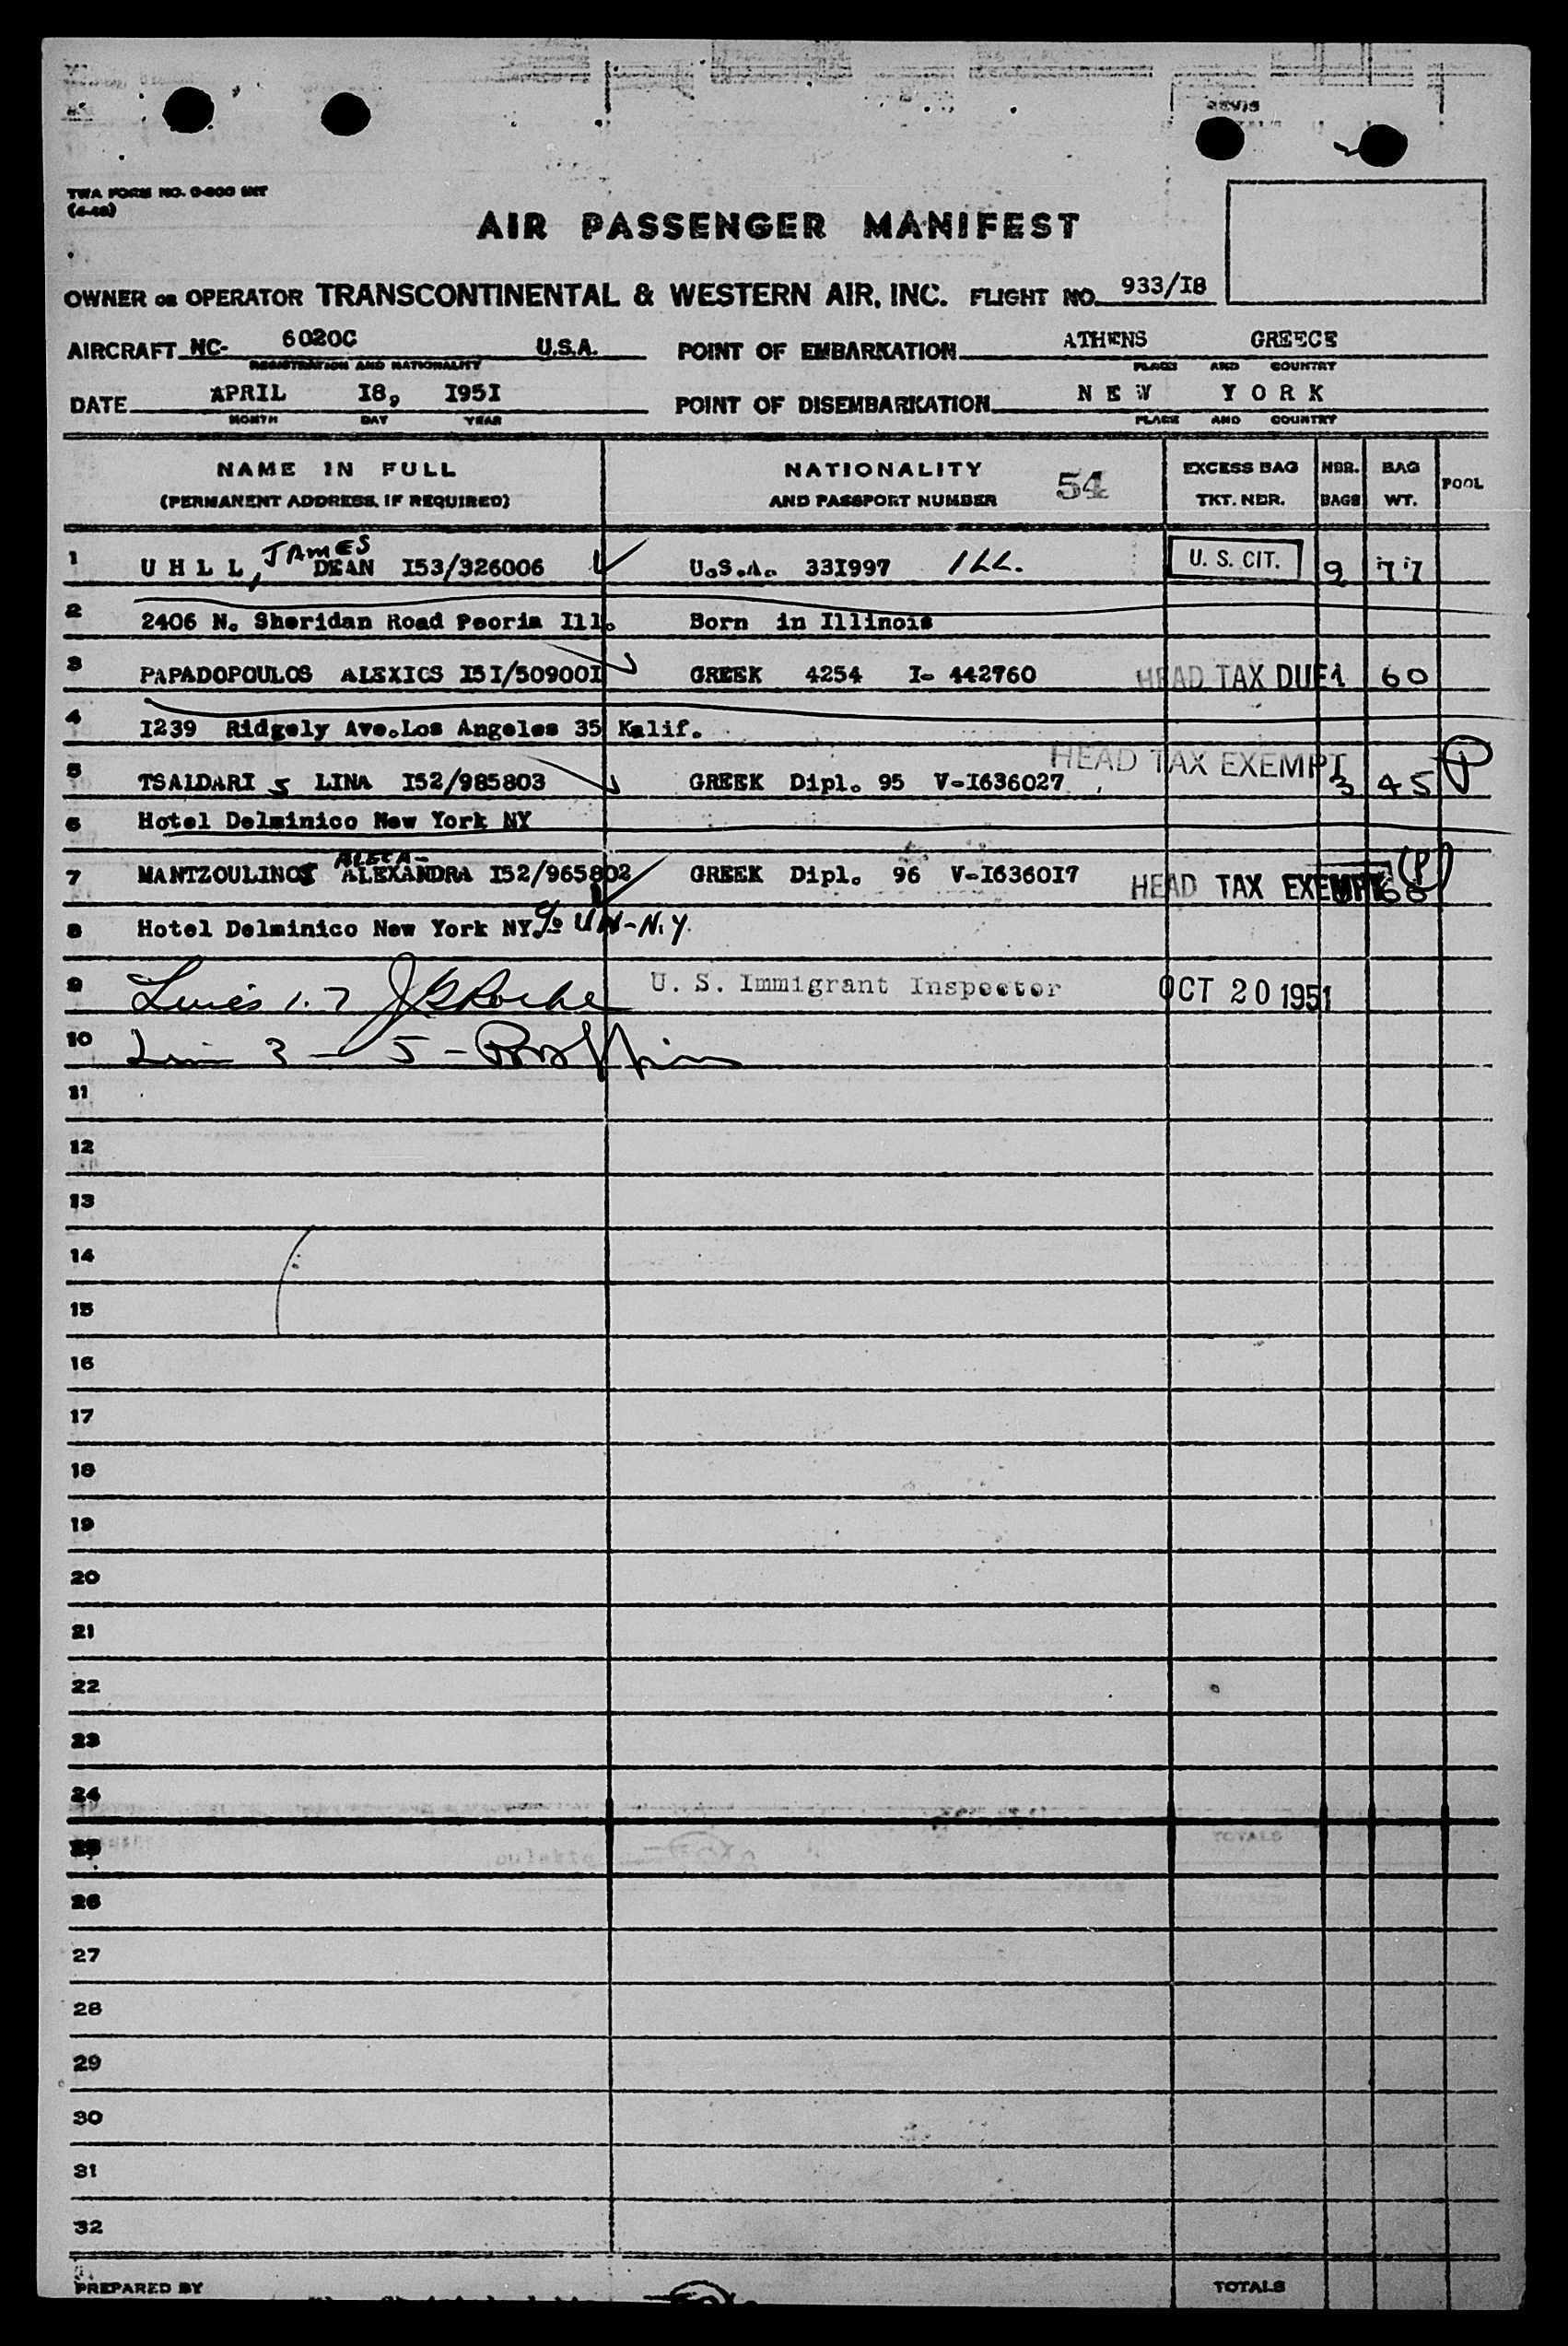 TWA FORM NO. 0-800 INT
(4-48)
AIR PASSENGER MANIFEST
OWNER OR OPERATOR TRANSCONTINENTAL & WESTERN AIR, INC. FLIGHT NO. 933/I8
AIRCRAFT NC- 6020C U.S.A. POINT OF EMBARKATION ATHENS GREECE
REGISTRATION AND NATIONALITY PLACE AND COUNTRY
DATE APRIL I8, I95I POINT OF DISEMBARKATION N E W Y O R K
MONTH DAY YEAR PLACE AND COUNTRY
NAME IN FULL NATIONALITY 54 EXCESS BAG NBR. BAG POOL
(PERMANENT ADDRESS, IF REQUIRED) AND PASSPORT NUMBER TKT. NBR. BAGS WT.
1 U H L L, JAMES DEAN I53/326006 U.S.A. 33I997 ILL. U. S. CIT. 9 77
2 2406 N. Sheridan Road Peoria Ill. Born in Illinois
3 PAPADOPOULOS ALEXICS I5I/50900I GREEK 4254 I- 442760 HEAD TAX DUE 1 60
4 I239 Ridgely Ave.Los Angeles 35 Kalif.
5 TSALDARI S LINA I52/985803 GREEK Dipl. 95 V-I636027 HEAD TAX EXEMPT 3 45 P
6 Hotel Delminico New York NY
ALECA-
7 MANTZOULINOS ALEXANDRA I52/965802 GREEK Dipl. 96 V-I6360I7 HEAD TAX EXEMPT (P)
8 Hotel Delminico New York NY. c/o UN-N.Y.
9 Lines 1.7 U. S. Immigrant Inspector OCT 20 1951
10 3 - 5 -
11
12
13
14
15
16
17
18
19
20
21
22
23
24
25
26
27
28
29
30
31
32
PREPARED BY TOTALS